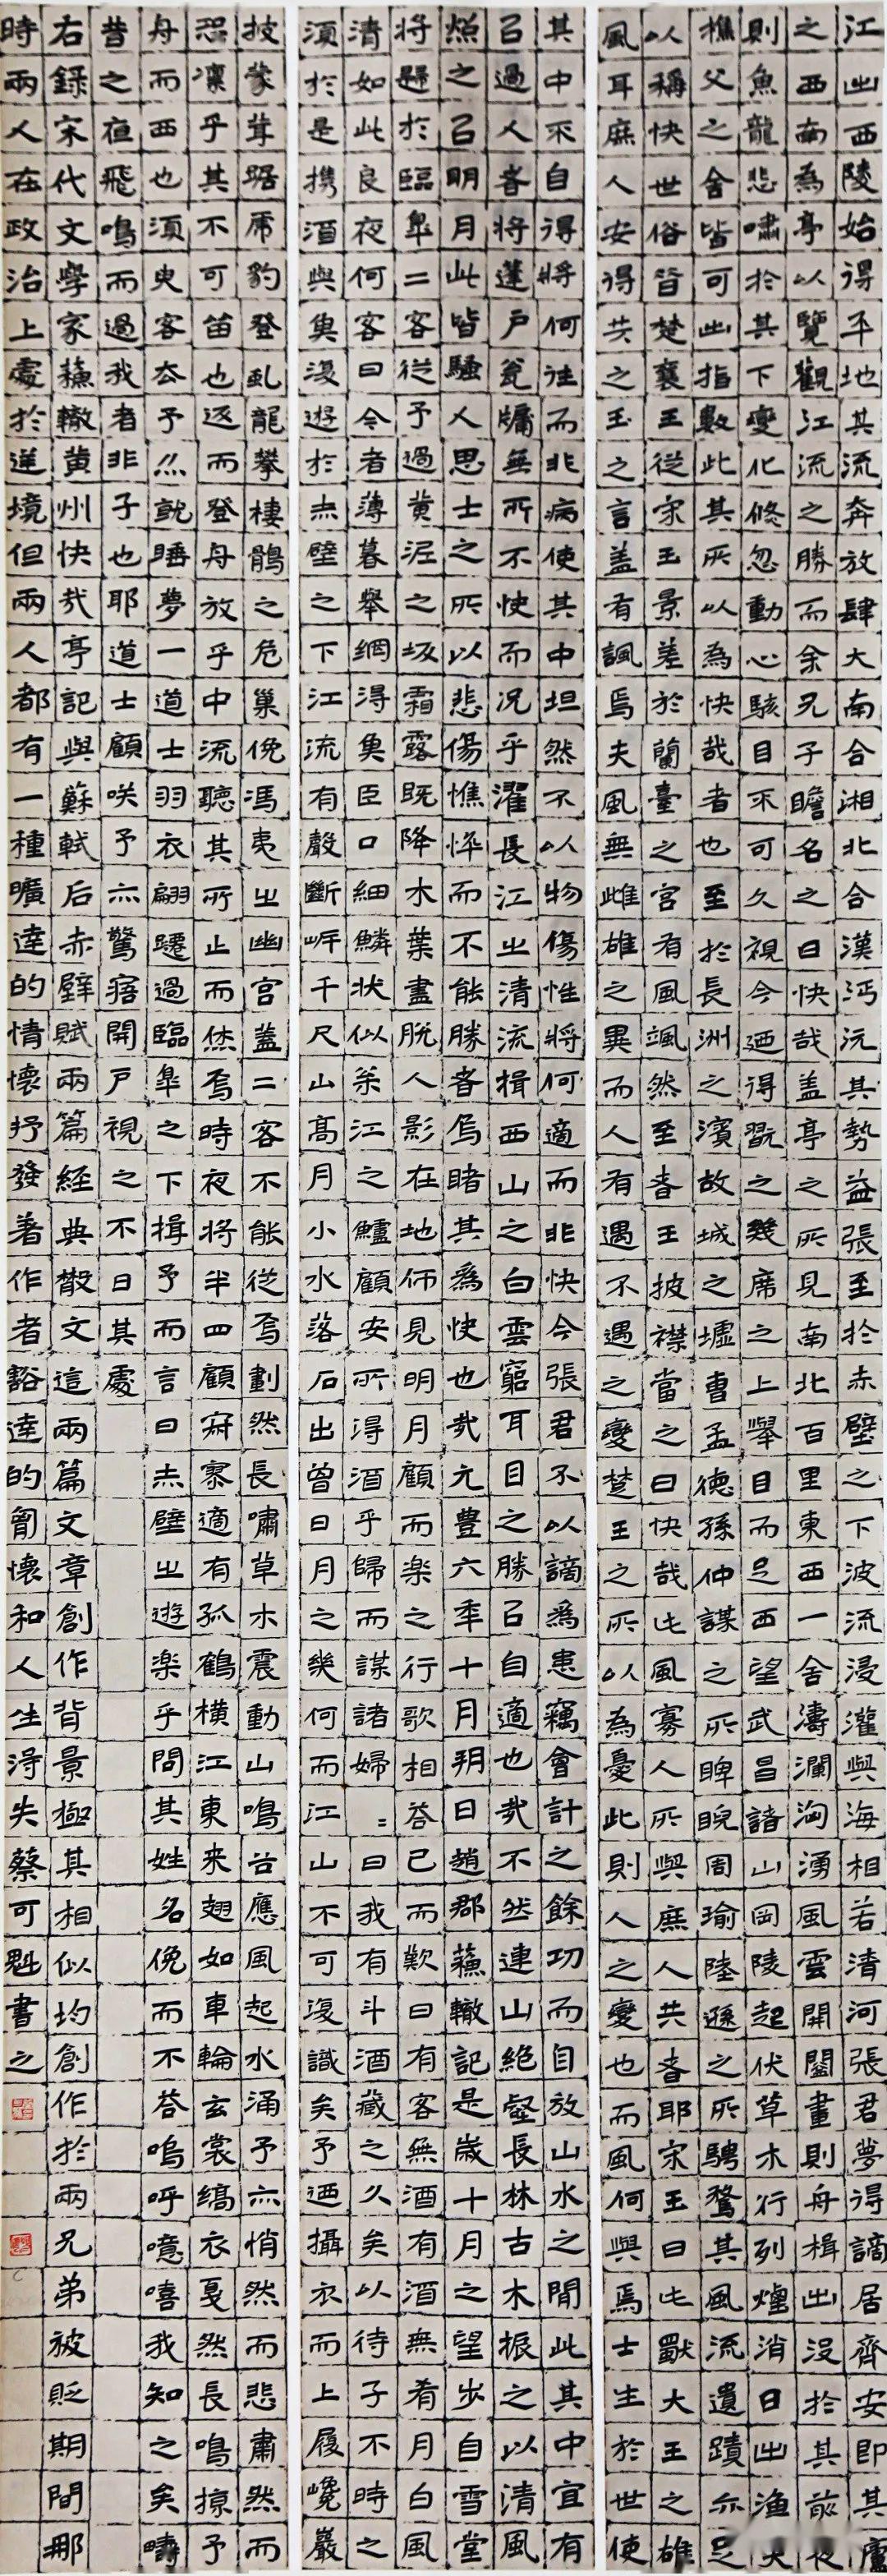 江出西陵始得平地其流奔放肆大南合湘北合漢沔沅其勢益張至於赤壁之下波流浸灌與海相若清河張君夢得謫居齊安即其廬
之西南為亭以覽觀江流之勝而余兄子瞻名之曰快哉盖亭之所見南北百里東西一舍濤瀾洶湧風雲開闔晝則舟楫出沒於其前夜
則魚龍悲嘯於其下變化倏忽動心駭目不可久視今廼得翫之幾席之上舉目而足西望武昌諸山岡陵起伏草木行列煙消日出漁夫
樵父之舍皆可出指數此其所以為快哉者也至於長洲之濱故城之墟曹孟德孫仲謀之所睥睨周瑜陸遜之所騁騖其風流遺蹟亦足
以稱快世俗昔楚襄王從宋玉景差於蘭臺之宮有風颯然至者王披襟當之曰快哉此風寡人所與庶人共者耶宋玉曰此獸大王之雄
風耳庶人安得共之玉之言盖有諷焉夫風無雌雄之異而人有遇不遇之變楚王之所以為憂此則人之變也而風何與焉士生於世使
其中不自得將何往而非病使其中坦然不以物傷性將何適而非快今張君不以謫爲患竊會計之餘功而自放山水之間此其中宜有
以過人者將蓬戶瓮牖無所不快而況乎濯長江之清流揖西山之白雲窮耳目之勝以自適也哉不然連山絕壑長林古木振之以清風
照之以明月此皆騷人思士之所以悲傷憔悴而不能勝者烏睹其爲快也哉元豊六年十月朔日趙郡蘇轍記是歲十月之望步自雪堂
將歸於臨皋二客從予過黄泥之坂霜露既降木葉盡脫人影在地仰見明月顧而楽之行歌相答已而歎曰有客無酒有酒無肴月白風
清如此良夜何客曰今者薄暮舉網得魚巨口細鱗狀似松江之鱸顧安所得酒乎歸而謀諸婦〻曰我有斗酒藏之久矣以待子不時之
須於是携酒與魚復遊於赤壁之下江流有聲斷岸千尺山高月小水落石出曾日月之幾何而江山不可復識矣予廼攝衣而上履巉巖
披蒙茸踞虎豹登虬龍攀棲鶻之危巢俛馮夷之幽宮蓋二客不能從焉劃然長嘯草木震動山鳴谷應風起水涌予亦悄然而悲肅然而
恐凜乎其不可留也返而登舟放乎中流聽其所止而休焉時夜將半四顧寂寥適有孤鶴橫江東来翅如車輪玄裳縞衣戛然長鳴掠予
舟而西也須臾客去予亦就睡夢一道士羽衣翩躚過臨皋之下揖予而言曰赤壁之遊楽乎問其姓名俛而不答嗚呼噫嘻我知之矣疇
昔之夜飛鳴而過我者非子也耶道士顧咲予亦驚寤開戶視之不日其處
右錄宋代文學家蘇轍黄州快哉亭記與蘇軾后赤壁賦兩篇經典散文這兩篇文章創作背景極其相似均創作於兩兄弟被貶期間那
時兩人在政治上處於逆境但兩人都有一種曠達的情懷抒發著作者豁達的胷懷和人生得失蔡可魁書之